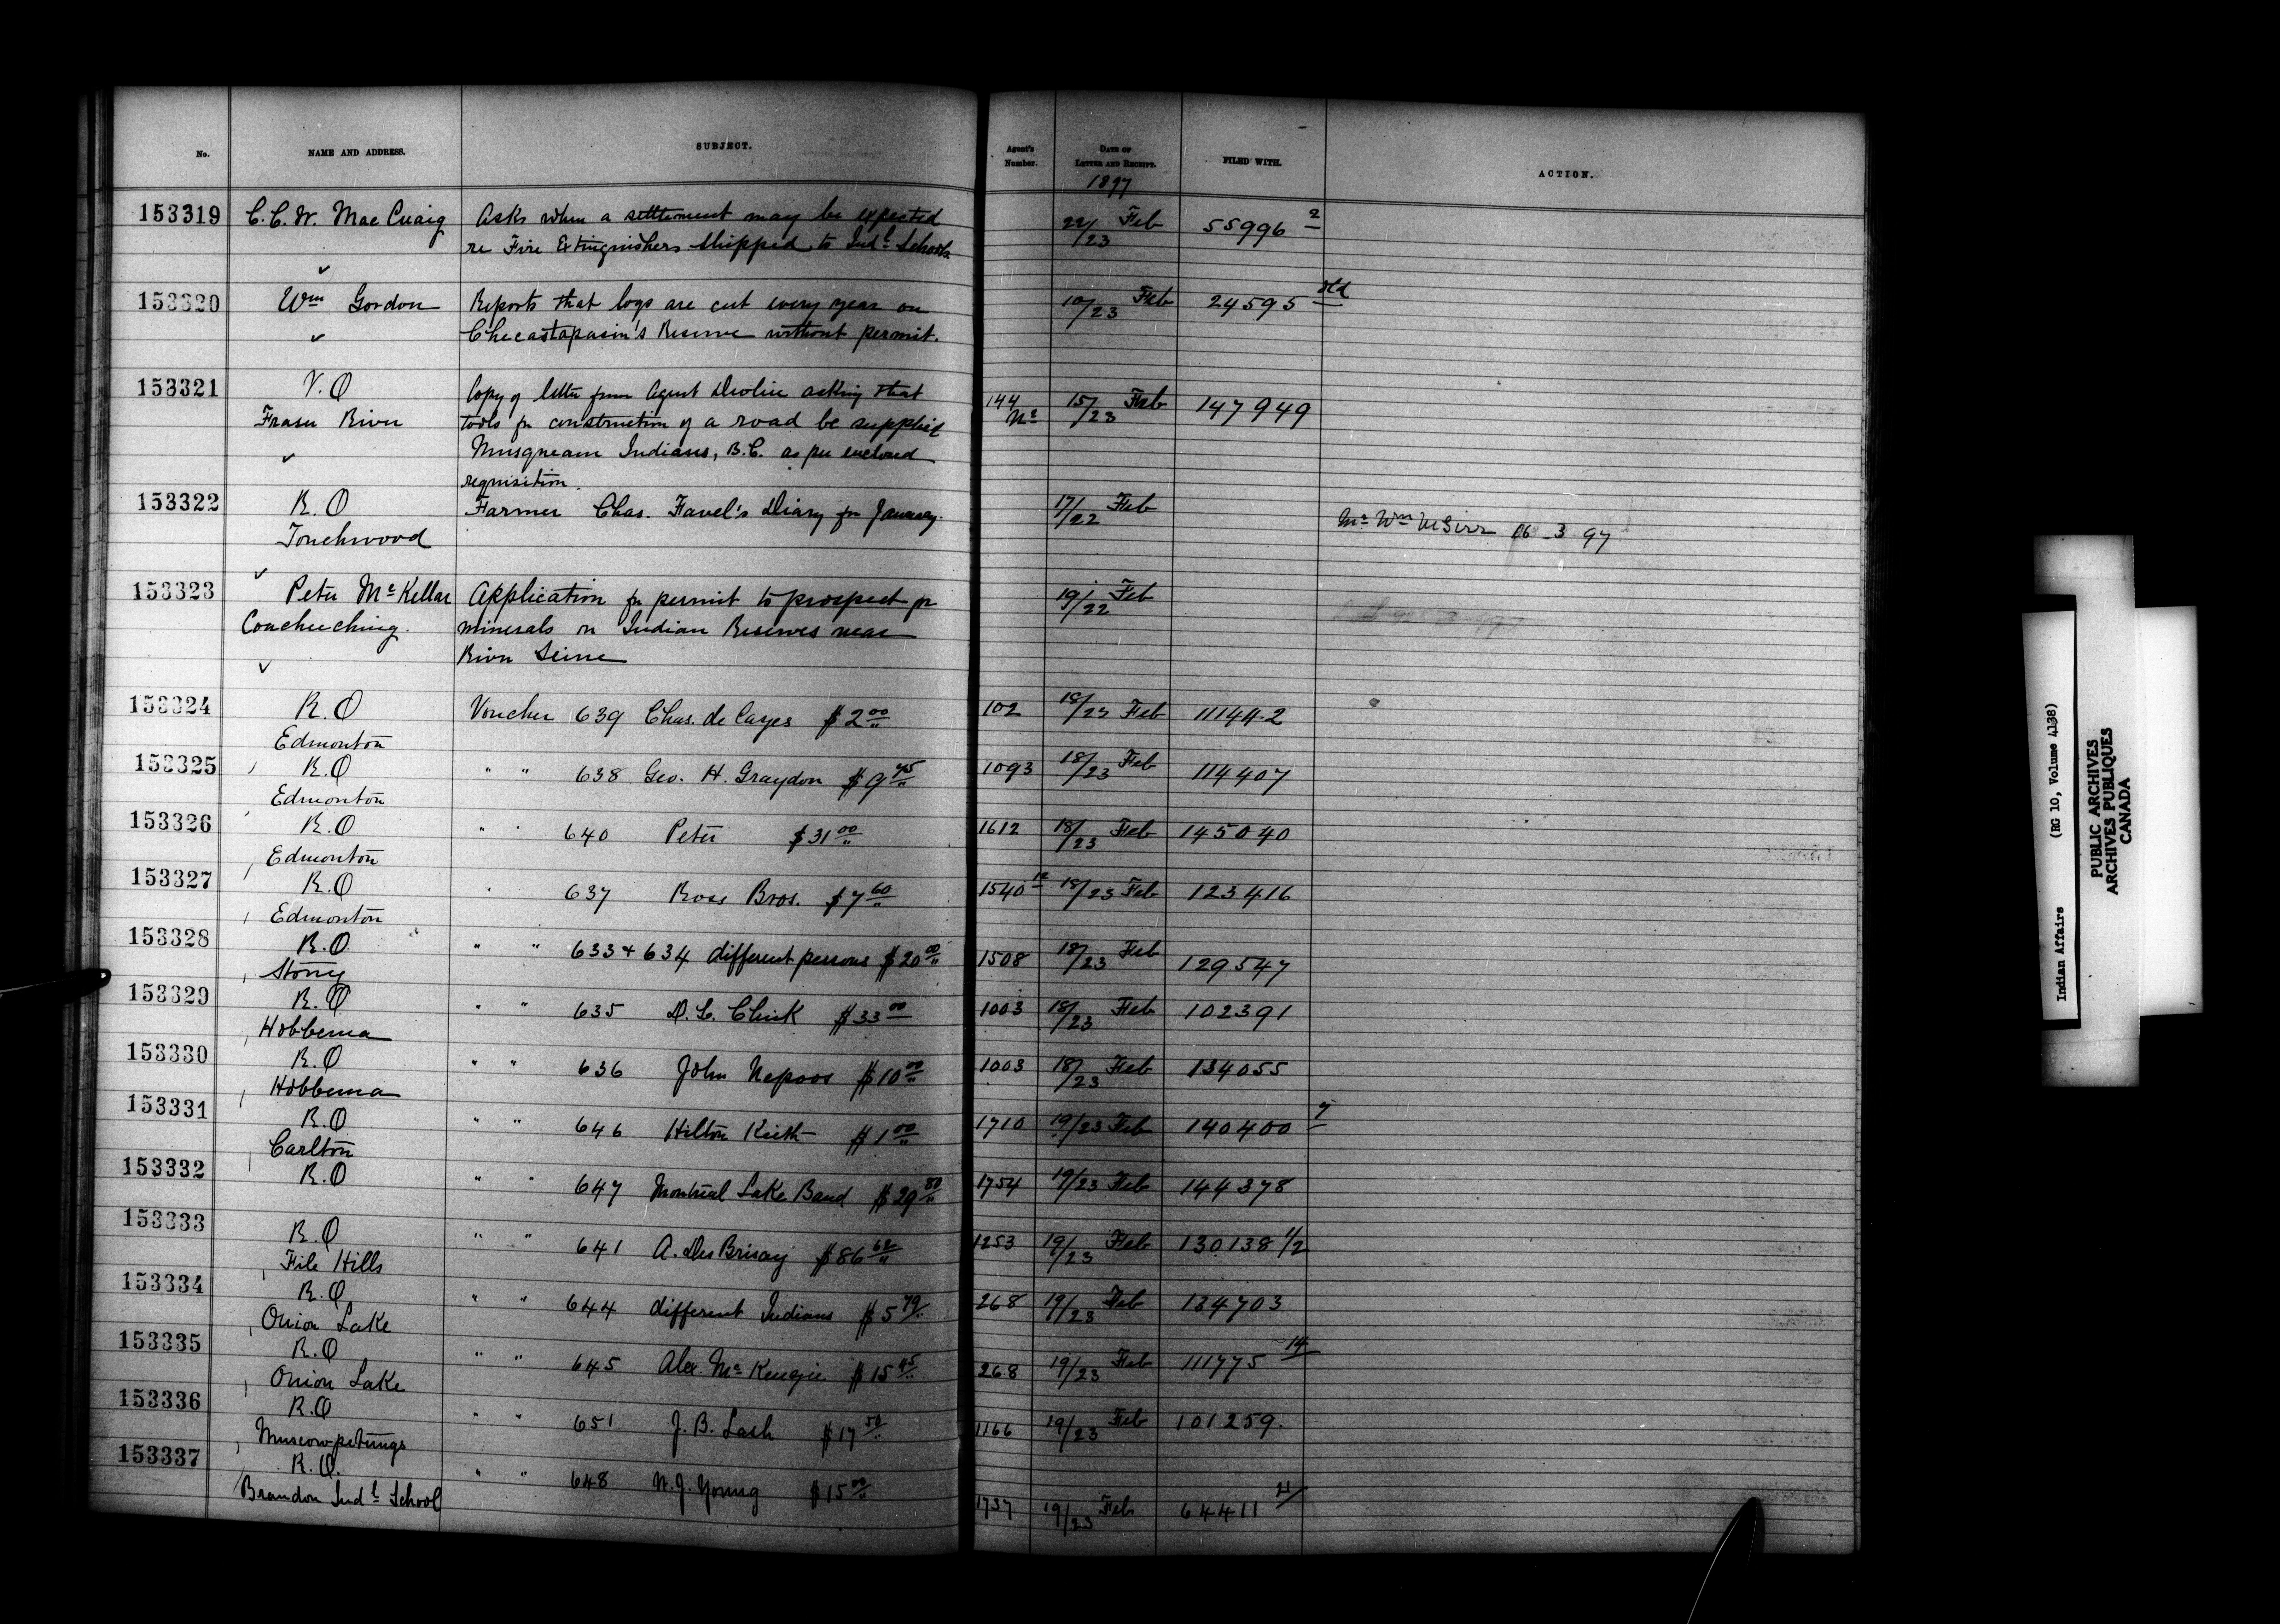 No. NAME AND ADDRESS. SUBJECT. Agent's Number. DATE OF LETTER AND RECEIPT. FILED WITH. ACTION.
1897
153319 C.C.W. Mac Cuaig Asks when a settlement may be expected 22/23 Feb 55996 2
re Fire Extinguishers shipped to Indl Schools
153320 Wm Gordon Reports that logs are cut every year on 10/23 Feb 24595
Checastapasin's Reserve without permit.
153321 V.O Copy of letter from Agent Devlin asking that 144 15/23 Feb 147949
Fraser River tools for construction of a road be supplied
Musqueam Indians, B.C. as per enclosed
requisition.
153322 R.O Farmer Chas. Favel's Diary for January. 17/22 Feb
Touchwood Mr Wm McGirr 16-3-97
153323 Peter McKellar Application for permit to prospect for 19/22 Feb
Coucheeching. minerals on Indian Reserves near
River Seine
153324 R.O Voucher 639 Chas. de Cazes $2 00 102 18/23 Feb 111442
Edmonton
153325 R.O " " 638 Geo. H. Graydon $9 45 1093 18/23 Feb 114407
Edmonton
153326 R.O " " 640 Peter $31 00 1612 18/23 Feb 145040
Edmonton
153327 R.O " 637 Ross Bros. $7 60 1540 12 18/23 Feb 123416
Edmonton
153328 R.O " " 633 + 634 different persons $20 00 1508 18/23 Feb 129547
Stony
153329 R.O " " 635 D.L. Clink $33 00 1003 18/23 Feb 102391
Hobbema
153330 R.O " " 636 John Nepoos $10 00 1003 18/23 Feb 134055
Hobbema
153331 R.O " " 646 Hilton Keith $1 00 1710 19/23 Feb 140400 7
Carlton
153332 R.O " " 647 Montreal Lake Band $29 80 1754 19/23 Feb 144378
153333 R.O " " 641 A. DesBrisay $86 62 1253 19/23 Feb 130138 1/2
File Hills
153334 R.O " " 644 different Indians $5 79 268 19/23 Feb 134703
Onion Lake
153335 R.O " " 645 Alex. McKenzie $15 45 268 19/23 Feb 111775 14
Onion Lake
153336 R.O " " 651 J.B. Lash $17 50 1166 19/23 Feb 101259.
Muscowpetungs
153337 R.O. " " 648 W.J. Young $15 00 1737 19/23 Feb 64411 21
Brandon Indl School
Indian Affairs (RG 10, Volume 4138)
PUBLIC ARCHIVES
ARCHIVES PUBLIQUES
CANADA